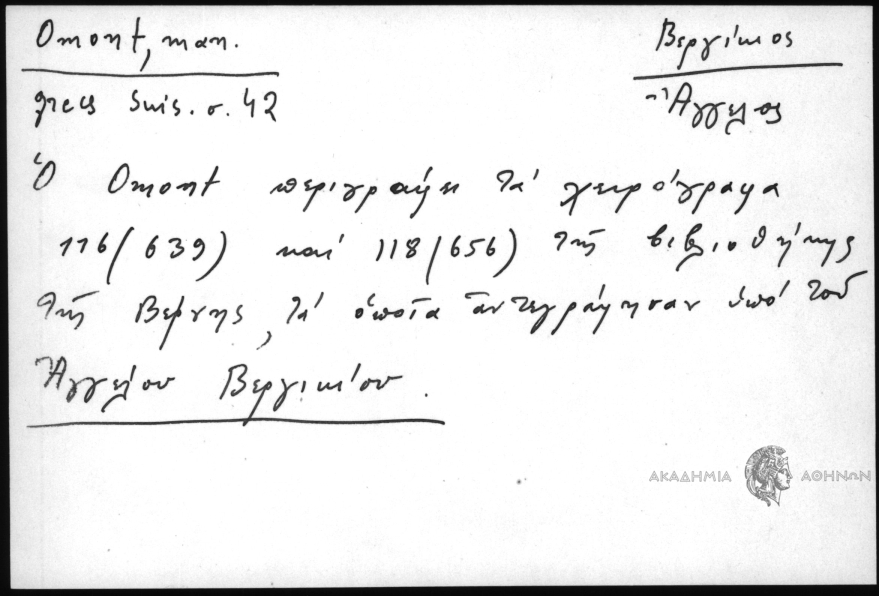 Omont, man.
grecs Suis. σ. 42
Βεργίκιος
Ἄγγελος
Ὁ Omont περιγράφει τά χειρόγραφα
116/639) καί 118/656) τῆς βιβλιοθήκης
τῆς Βέρνης, τά ὁποῖα ἀντεγράφησαν ὑπό τοῦ
Ἀγγέλου Βεργικίου.
ΑΚΑΔΗΜΙΑ ΑΘΗΝΩΝ